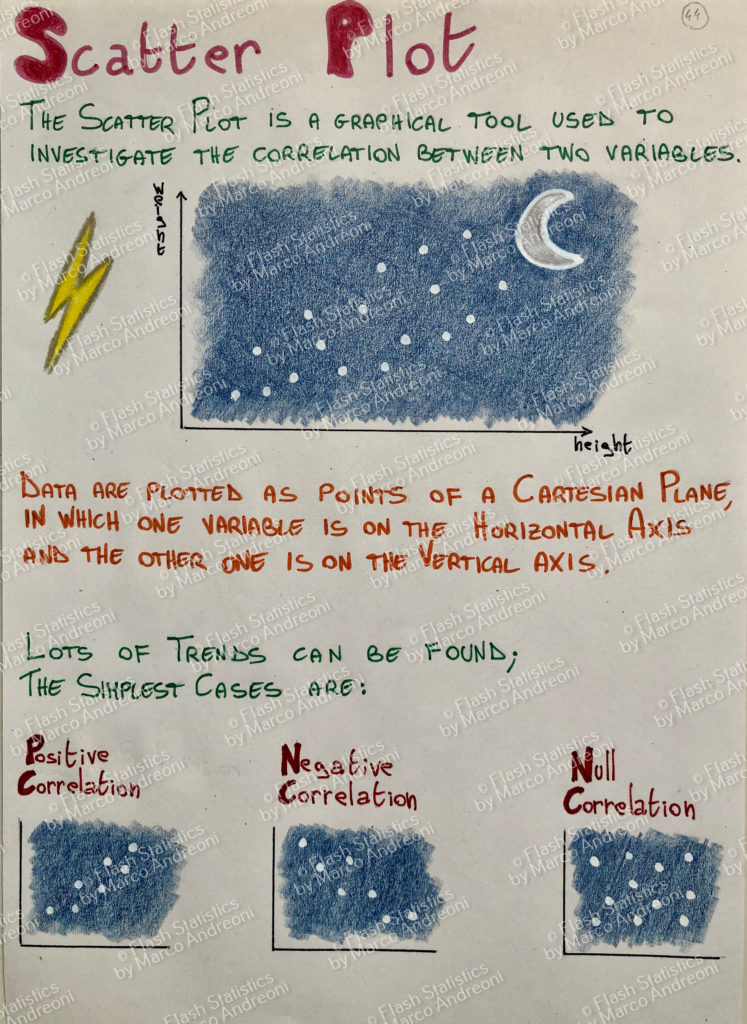 Scatter Plot
44
THE SCATTER PLOT IS A GRAPHICAL TOOL USED TO
INVESTIGATE THE CORRELATION BETWEEN TWO VARIABLES.
weight
height
DATA ARE PLOTTED AS POINTS OF A CARTESIAN PLANE,
IN WHICH ONE VARIABLE IS ON THE HORIZONTAL AXIS
AND THE OTHER ONE IS ON THE VERTICAL AXIS.
LOTS OF TRENDS CAN BE FOUND;
THE SIMPLEST CASES ARE:
Positive
Correlation
Negative
Correlation
Null
Correlation
© Flash Statistics
by Marco Andreoni